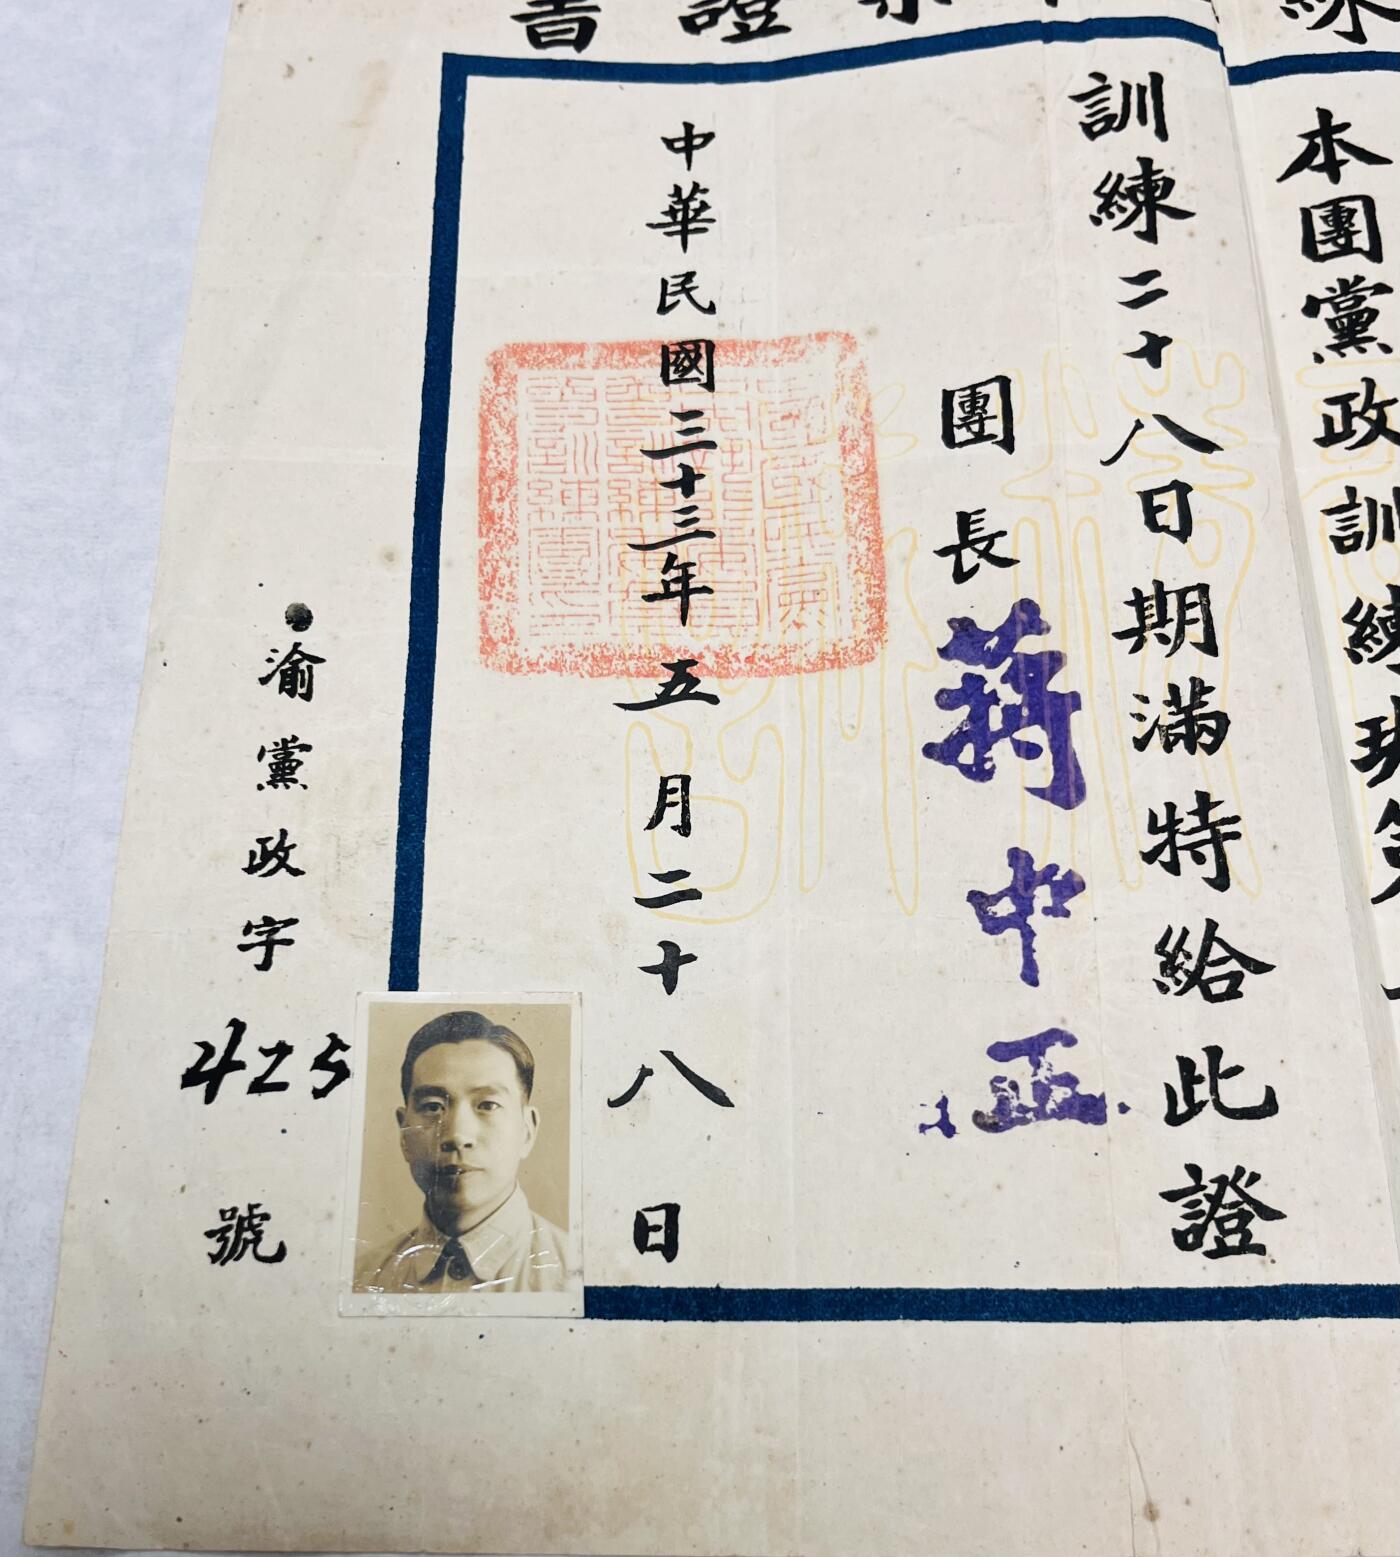 證書
本團黨政訓練班第
訓練二十八日期滿特給此證
團長蔣中正
中華民國三十三年五月二十八日
渝黨政字425號